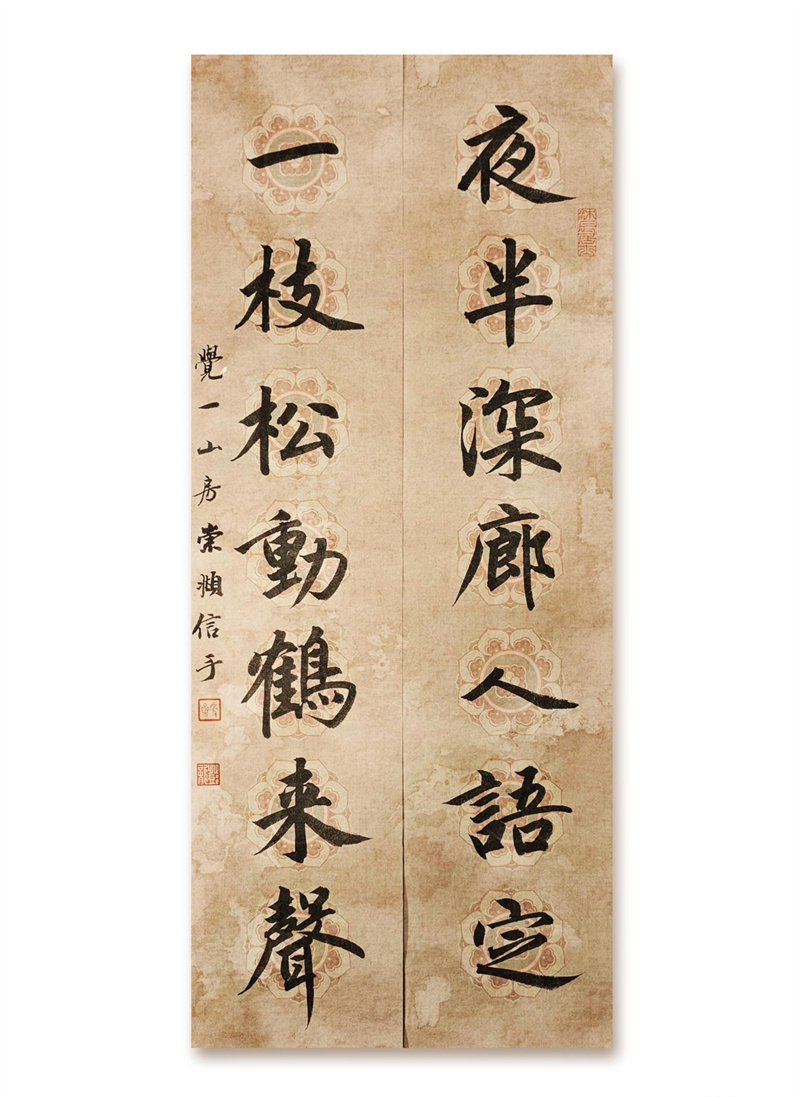 夜半深廊人語定
一枝松動鶴来聲
覺一山房崇頫信手